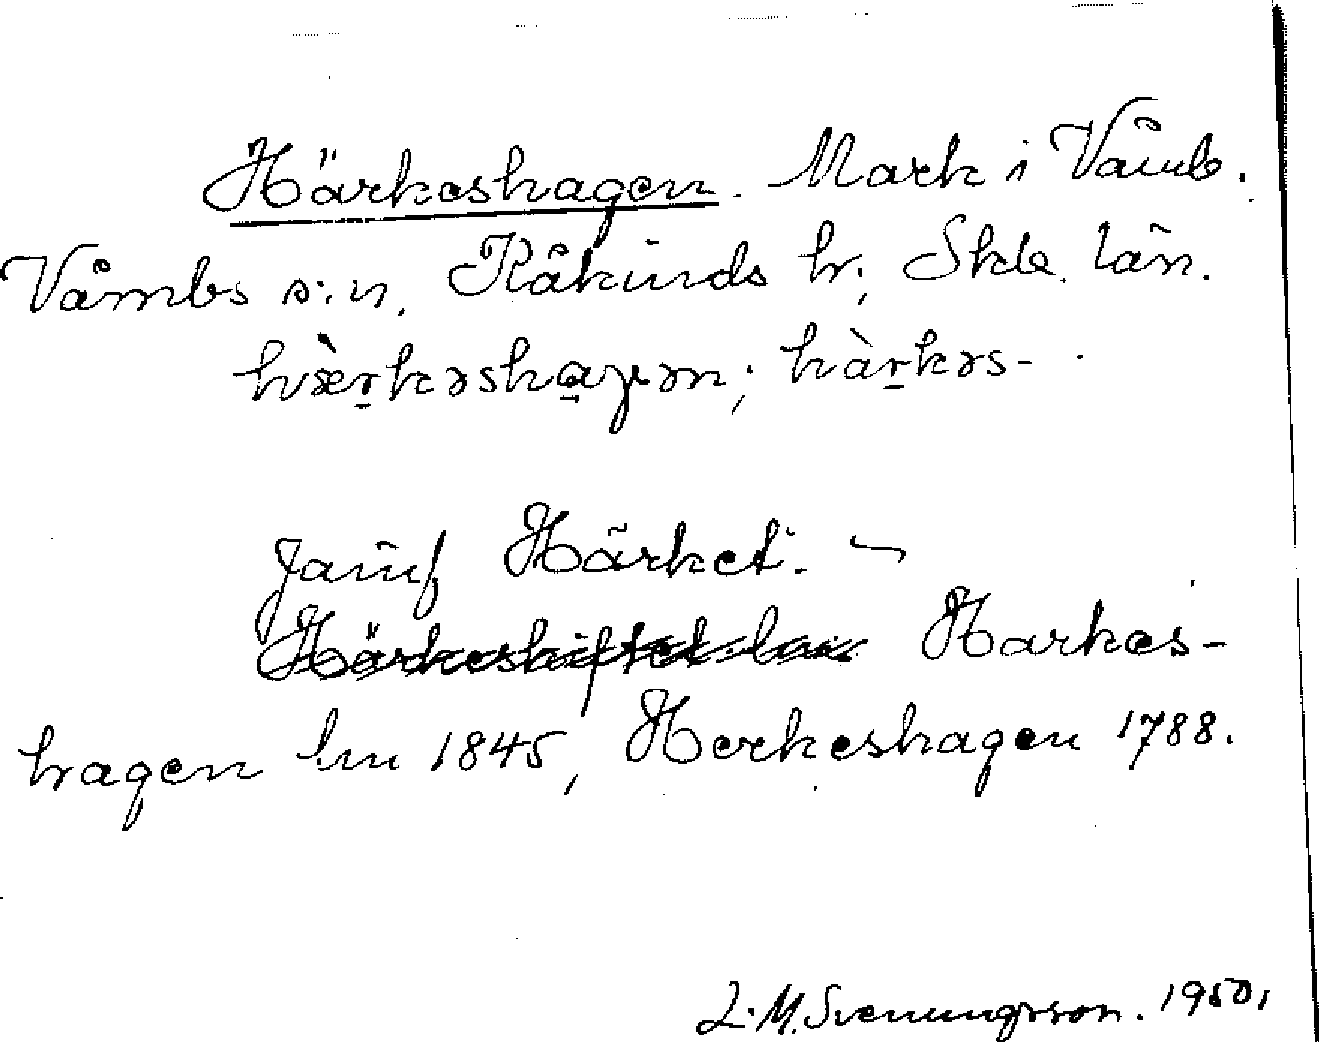 Härkeshagen. Mark i Våmb.
Våmbs s:n, Kåkinds hr; Skbg. län.
hæ̀r̠kəshagən; hàr̠kəs-
Jämf Härket.
Harkes-
hagen Lm 1845, Herkeshagen 1788.
L.M. Svenungsson. 1950.